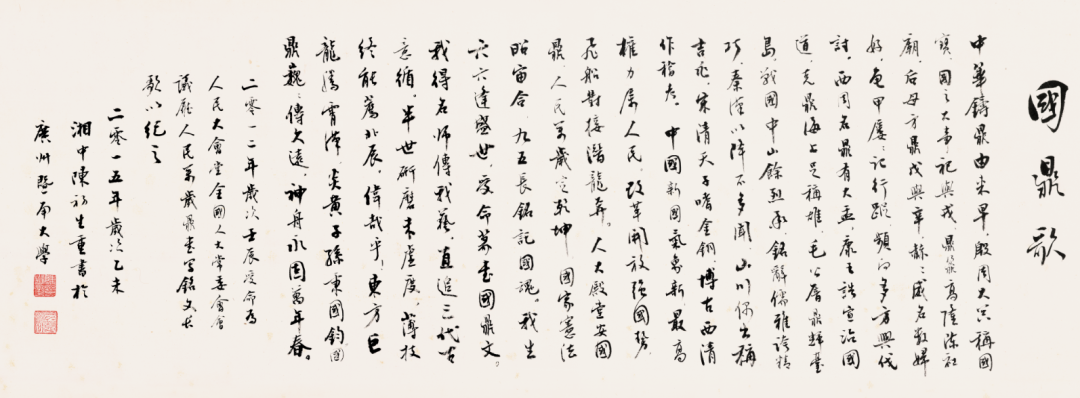 國鼎歌
中華鑄鼎由來早殷周大器稱國
寶國之大事祀與戎鼎鼐高陸陳社
廟后母方鼎戊與辛赫赫威名數婦
好龜甲屢屢記行蹤頻問多方興伐
討西周名鼎有大盂康王誥宣治國
道克鼎海上足稱雄毛公厝鼎歸臺
島戰國中山餘烈承銘辭儒雅誇精
巧秦漢以降不多聞山川偶出稱
吉兆宋清天子嗜金銅博古西清
作稽考中國新國氣象新最高
權力屬人民改革開放強國勢
飛船對接潛龍奔人大殿堂安國
鼎人民萬歲定乾坤國家憲法
昭宙合九五長銘記國魂我生
六六逢盛世受命篆書國鼎文
我得名師傳我藝直追三代古
意循半世研磨未虛度薄技
終能薦北辰偉哉乎東方巨
龍騰霄漢炎黃子孫秉國鈞國
鼎巍巍傳久遠神舟永固萬年春
二零一二年歲次壬辰受命爲
人民大會堂全國人大常委會會
議廳人民萬歲鼎書寫銘文長
歌以紀之
二零一五年歲次乙未
湘中陳初生重書於
廣州暨南大學